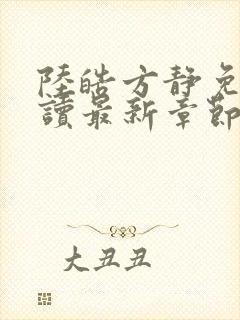 陸皓方靜免
讀最新章節
大丑丑